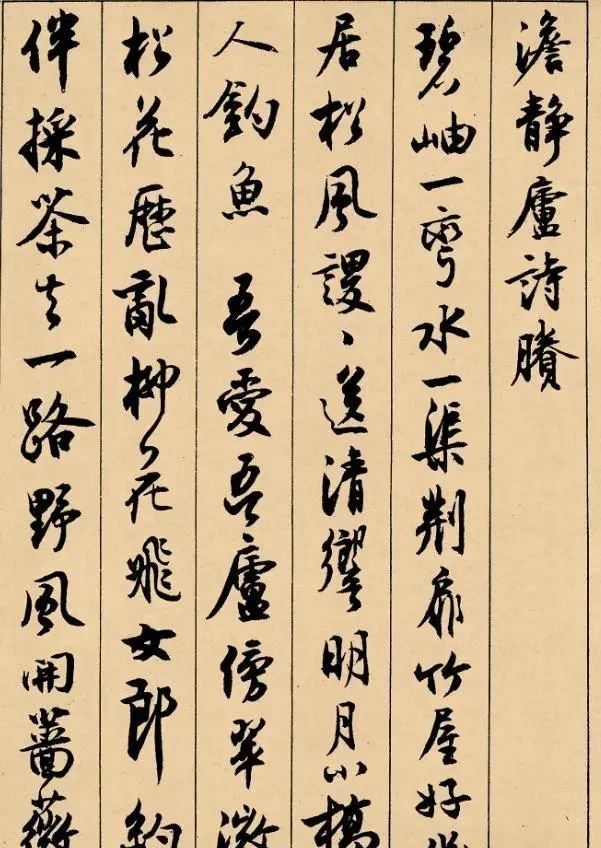 澹靜廬詩賸
碧岫一彎水一渠荆扉竹屋好
居松風謖〻送清響明月小橋
人釣魚 吾愛吾廬傍翠微
松花歷亂柳花飛女郎約
伴採茶去一路野風開薔薇